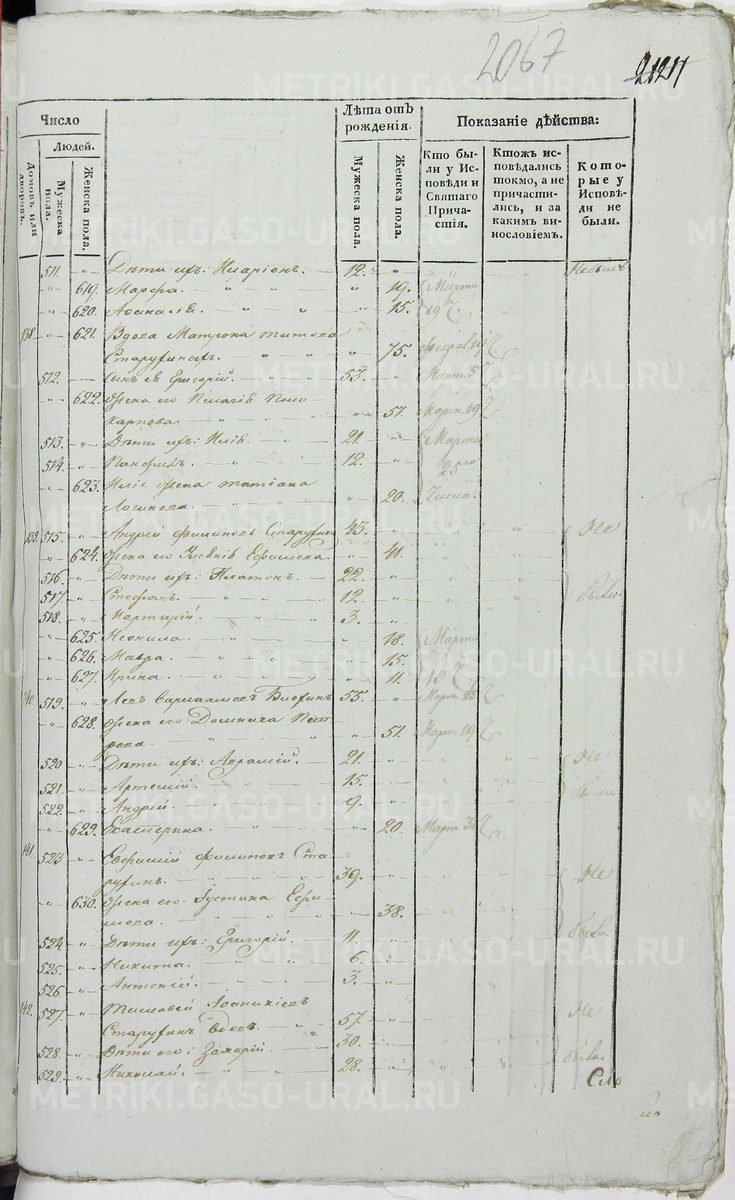 2067
2121
Число
Людей.
Домовъ или дворовъ.
Мужеска пола.
Женска пола.
Лѣта отъ рожденія.
Мужеска пола.
Женска пола.
Показаніе дѣйства:
Кто бы-
ли у Ис-
повѣди и
Святаго
Прича-
стія.
Ктожъ ис-
повѣдались
токмо, а не
причасти-
лись, и за
какимъ ви-
нословіемъ.
Кото-
рые у
Исповѣ-
ди не
были.
511. Дѣти ихъ: Иларіонъ. 12. Небылъ
619. Марѳа. 19. Марта
620. Аѳанасія. 15. 19
138. 621. Вдова Матрона Титова
Старухиныхъ. 75. Феврал. 19
512. Сынъ ея Григорій. 53. Март. 5
622. Жена его Пелагія Поли-
карпова. 51. Март. 19
513. Дѣти ихъ: Илія. 21. Марта
514. Панфилъ. 12. 25го
623. Иліи жена Татіана
Логинова. 20. Числа.
139. 515. Андрей Филиповъ Старухинъ 43. Не
624. Жена его Ефимова. 41.
516. Дѣти ихъ: Платонъ. 22.
517. Стефанъ. 12. были.
518. Мартирій. 3.
625. Неонила. 18. Марта
626. Мавра. 15.
627. Ирина. 11. 18
140. 519. Левъ Варлаамовъ 55. Март.
628. Жена его Домника Пет-
рова. 51. Март. 19
520. Дѣти ихъ: Аврамій. 21. Не
521. Артемій. 15. были.
522. Андрей. 9.
629. Екатерина. 20. Март.
141. 523. Евфимій Филиповъ Ста-
рухинъ. 39. Не
630. Жена его Іустина Ефи-
мова. 38.
524. Дѣти ихъ: Григорій. 11. были.
525. Никита. 6.
526. Антоній. 3.
142. 527. Тимоѳей Іоанникіевъ Не
Старухинъ вдовъ. 57.
528. Дѣти его: Захарій. 30. были.
529. Николай. 28.
METRIKI.GASO-URAL.RU